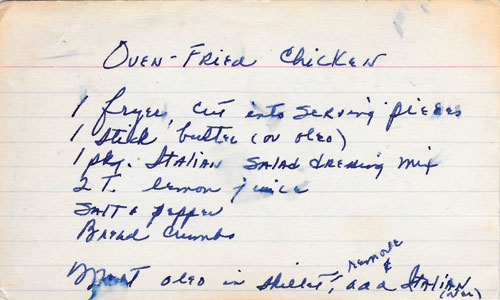 Oven-Fried Chicken
1 fryer, cut into serving pieces
1 stick butter (or oleo)
1 pkg. Italian salad dressing mix
2 T. lemon juice
Salt & pepper
Bread crumbs
remove &
Melt oleo in skillet, add Italian
(over)